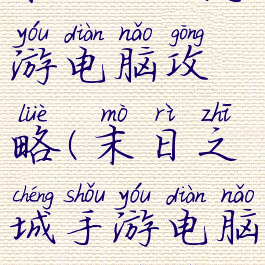 yóu diàn nǎo gōng
游电脑攻
lüè mò rì zhī
略(末日之
chéng shǒu yóu diàn nǎo
城手游电脑